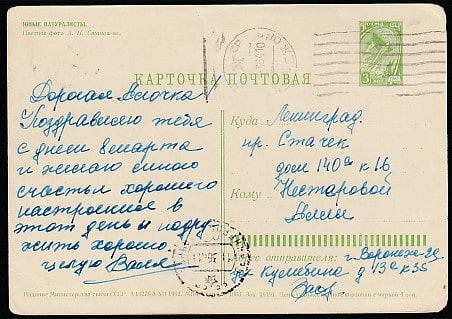 ЮНЫЕ НАТУРАЛИСТЫ.
Цветное фото А. Н.
КАРТОЧКА ПОЧТОВАЯ
ПОЧТА СССР
3
Дорогая Аллочка
Поздравляю тебя
с днем 8 марта
и желаю много
счастья хорошего
настроение в
этот день и
жить хорошо.
целую Валя
Куда Ленинград.
пр. Стачек
дом 140а к 16
Кому Нестаровой
Алле
Адрес отправителя: г. Воронеж-
д 13а к 35
Издание Министерства связи СССР.